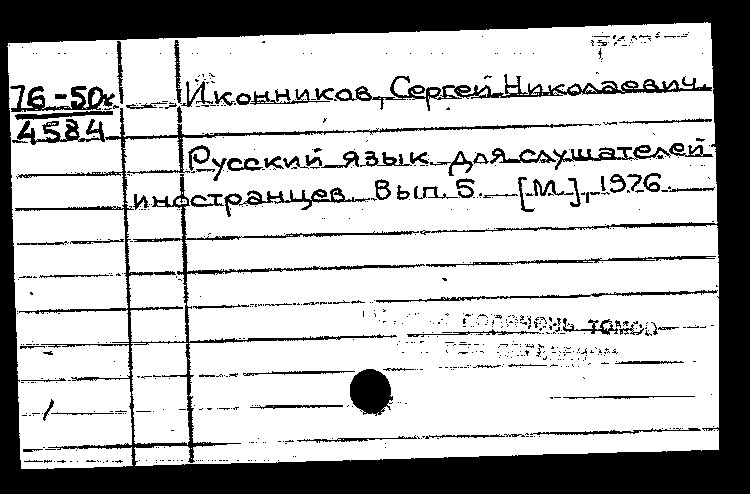 76-50к
4584
Иконников, Сергей Николаевич.
Русский язык для слушателей-
иностранцев. Вып. 5. [М.], 1976.
перечень томов